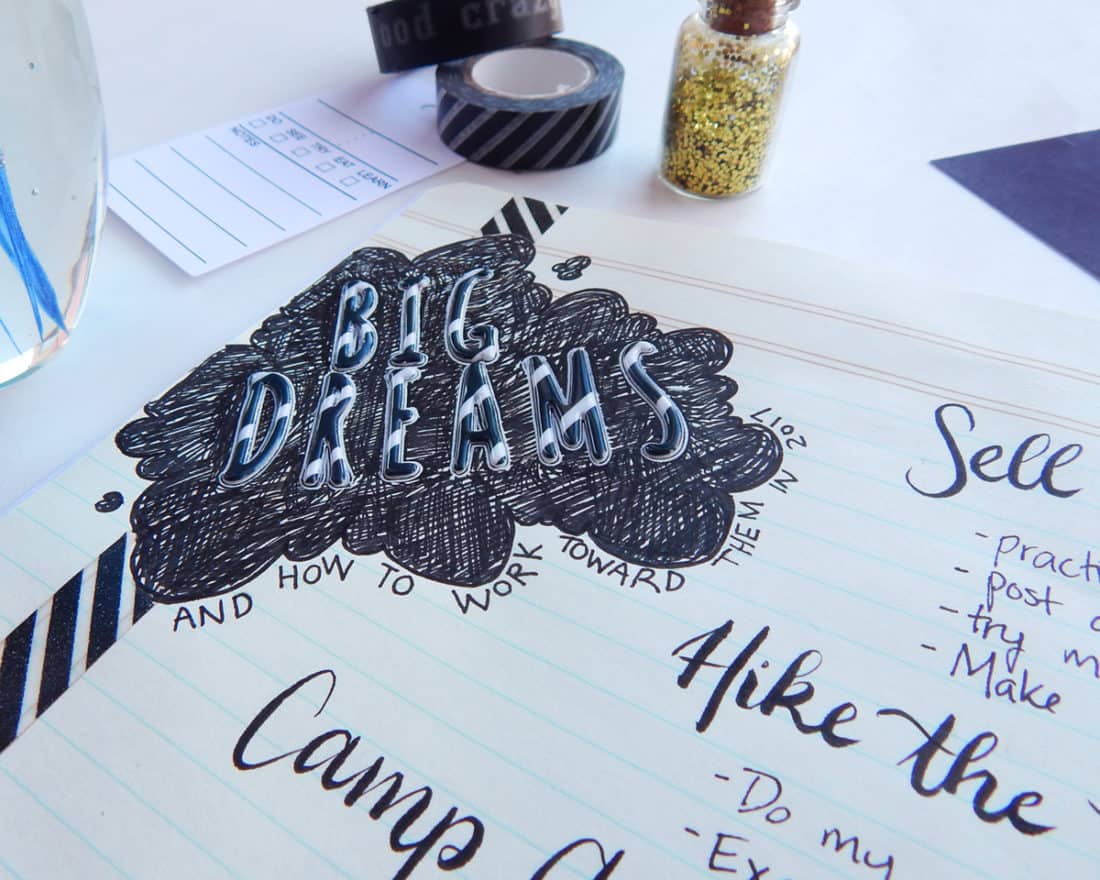 ood craz
DO
SEE
TRY
EAT
LEARN
BIG
DREAMS
AND HOW TO WORK TOWARD THEM IN 2017
Sell
- practi
- post
- try m
- Make
Hike the
- Do my
- Ex
Camp